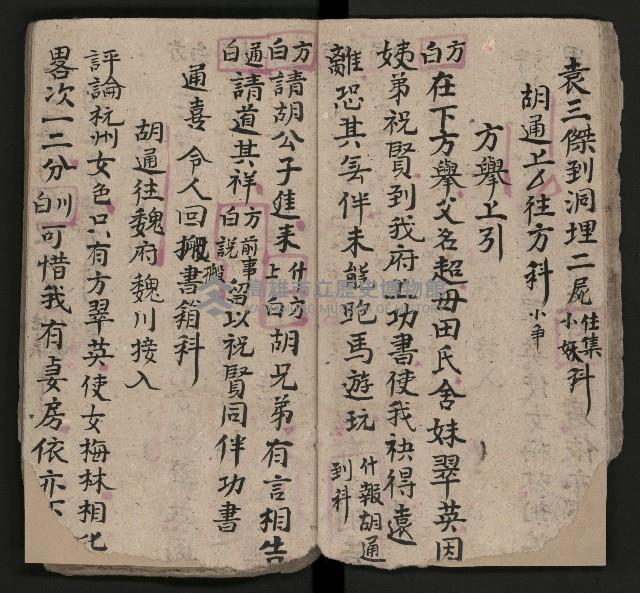 袁三傑到洞埋二屍 仕集小妖科
胡通上云往方科 小争
方舉上引
方白 在下方舉父名超母田氏舍妹翠英因
姨弟祝賢到我府上功書使我袂得遠
離恐其無伴未能跑馬遊玩 什報胡通到科
方白 請胡公子進來 什上 方白 胡兄弟有言相告
通白 請道其祥 方白 前事說 留以祝賢同伴功書
通喜 令人回搬書箱科
胡通往魏府魏川接入
評論杭州女色只有方翠英使女梅林相化
畧次一二分 川白 可惜我有妻房依亦不
高雄市立歷史博物館
KAOHSIUNG MUSEUM OF HISTORY